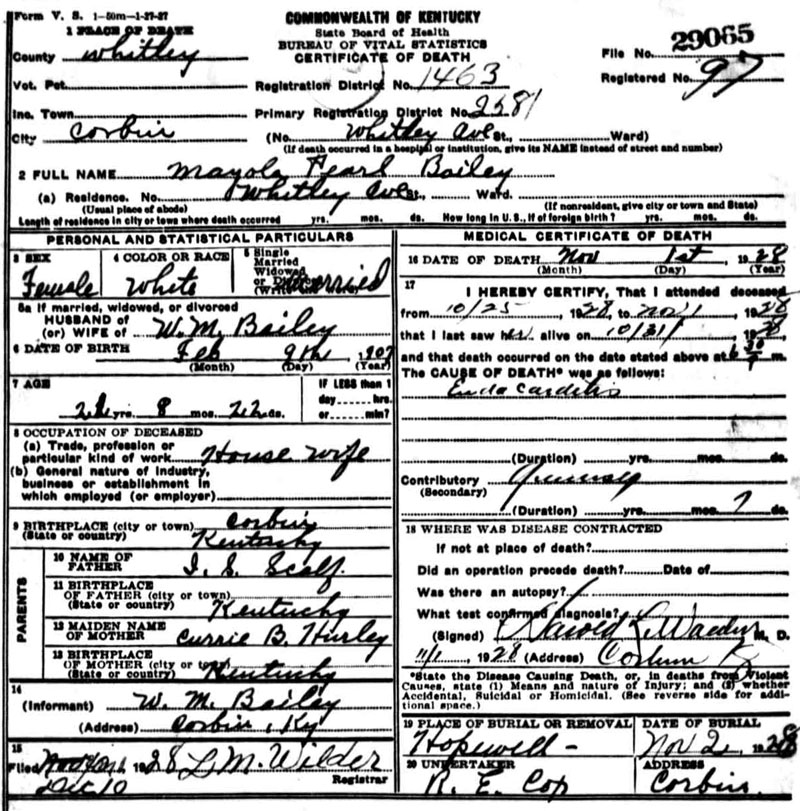 Form V. S. 1-50m-1-27-27
COMMONWEALTH OF KENTUCKY
State Board of Health
BUREAU OF VITAL STATISTICS
CERTIFICATE OF DEATH
File No. 29065
Registered No. 97
1 PLACE OF DEATH
County Whitley
Vot. Pct.
Registration District No. 1463
Inc. Town
Primary Registration District No. 2581
City Corbin
(No. Whitley Ave St., Ward)
(If death occurred in a hospital or institution, give its NAME instead of street and number)
2 FULL NAME Mayola Pearl Bailey
(a) Residence. No. Whitley Ave St., Ward.
(Usual place of abode) (If nonresident, give city or town and State)
Length of residence in city or town where death occurred yrs. mos. ds. How long in U. S., if of foreign birth? yrs. mos. ds.
PERSONAL AND STATISTICAL PARTICULARS
3 SEX 4 COLOR OR RACE 5 Single
Married
Widowed
or
Female White Married
5a If married, widowed, or divorced
HUSBAND of
(or) WIFE of W. M. Bailey
6 DATE OF BIRTH Feb 9th 1907
(Month) (Day) (Year)
7 AGE IF LESS than 1
day hrs.
yrs. 8 mos. 22 ds. or min?
8 OCCUPATION OF DECEASED
(a) Trade, profession or
particular kind of work House wife
(b) General nature of industry,
business or establishment in
which employed (or employer)
9 BIRTHPLACE (city or town) Corbin
(State or country) Kentucky
PARENTS
10 NAME OF
FATHER I. S. Scalf
11 BIRTHPLACE
OF FATHER (city or town)
(State or country) Kentucky
12 MAIDEN NAME
OF MOTHER Currie B. Hurley
13 BIRTHPLACE
OF MOTHER (city or town)
(State or country) Kentucky
14
(Informant) W. M. Bailey
(Address) Corbin, Ky
15
Filed 1928 L. M. Wilder
Dec 10 Registrar
MEDICAL CERTIFICATE OF DEATH
16 DATE OF DEATH Nov 1st, 1928
(Month) (Day) (Year)
17 I HEREBY CERTIFY, That I attended deceased
from 10/25, 1928, to Nov 1, 1928
that I last saw her alive on 10/31, 1928,
and that death occurred on the date stated above at 6 30 m.
The CAUSE OF DEATH* was as follows:
Endocarditis
(Duration) yrs. mos. ds.
Contributory
(Secondary)
(Duration) yrs. mos. 7 ds.
18 WHERE WAS DISEASE CONTRACTED
If not at place of death?
Did an operation precede death? Date of
Was there an autopsy?
What test confirmed diagnosis?
(Signed) Harold M. D.
11/1, 1928 (Address) Corbin Ky
*State the Disease Causing Death, or, in deaths from Violent
Causes, state (1) Means and nature of Injury; and (2) whether
Accidental, Suicidal or Homicidal. (See reverse side for addi-
tional space.)
19 PLACE OF BURIAL OR REMOVAL DATE OF BURIAL
Hopewell - Nov 2, 1928
20 UNDERTAKER ADDRESS
R. E. Cop Corbin.